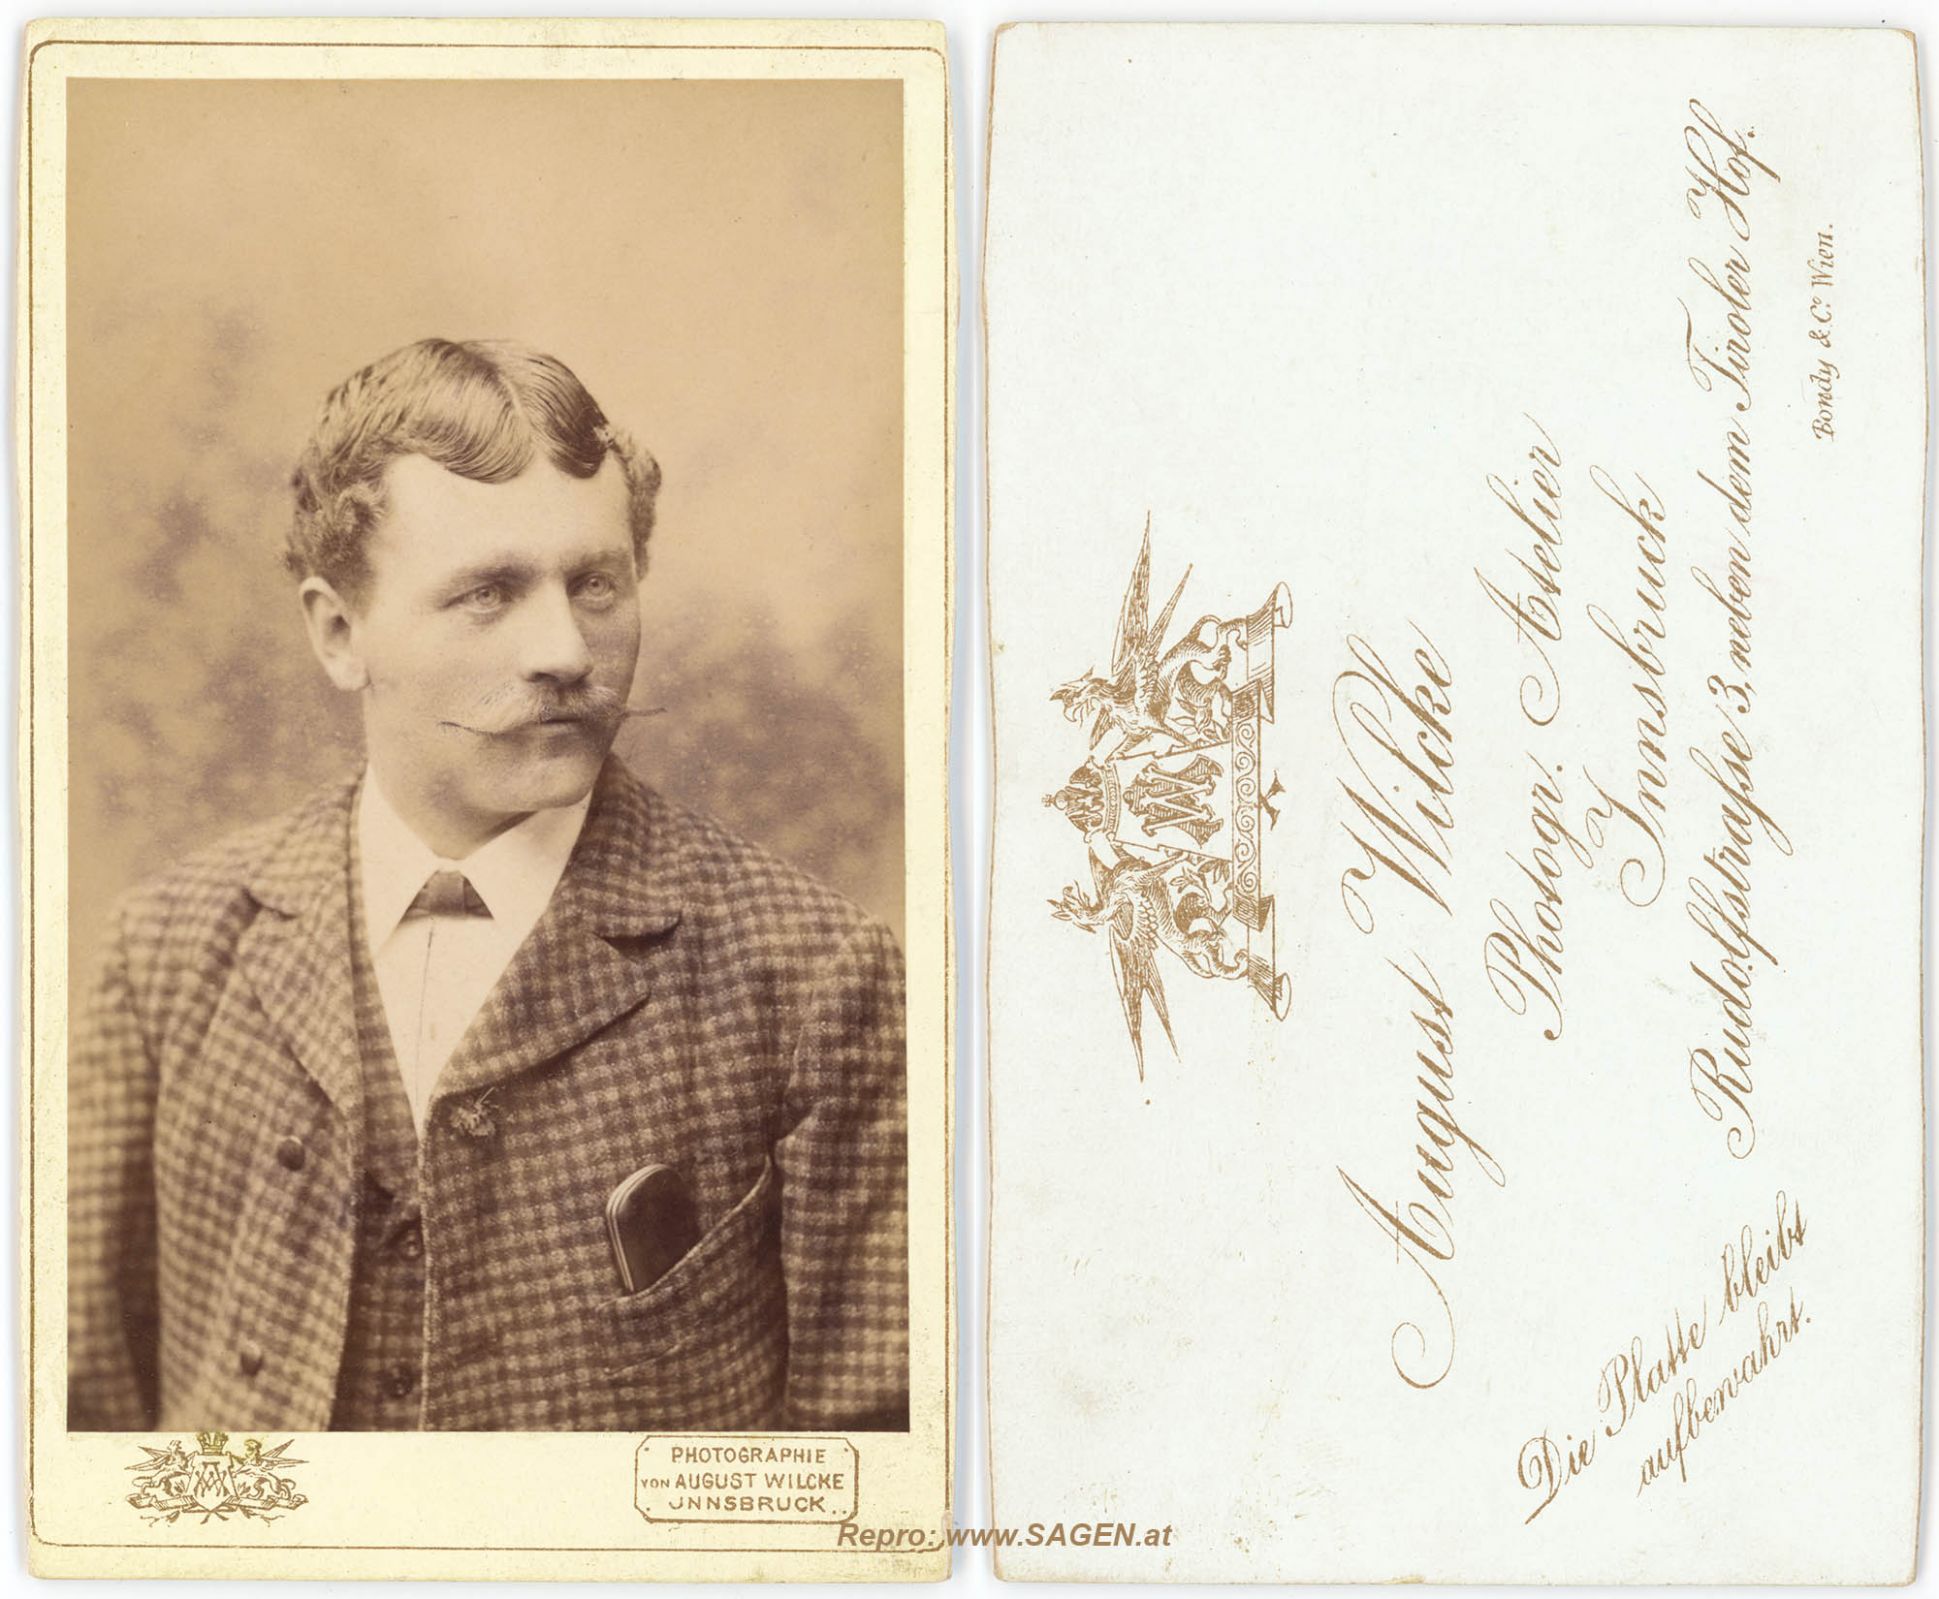 PHOTOGRAPHIE
VON AUGUST WILCKE
JNNSBRUCK.
AW
Repro: www.SAGEN.at
AW
August Wilcke
Photogr. Atelier
Innsbruck
Rudolfstrasse 3, neben dem Tiroler Hof.
Die Platte bleibt
aufbewahrt.
Bondy & Co. Wien.